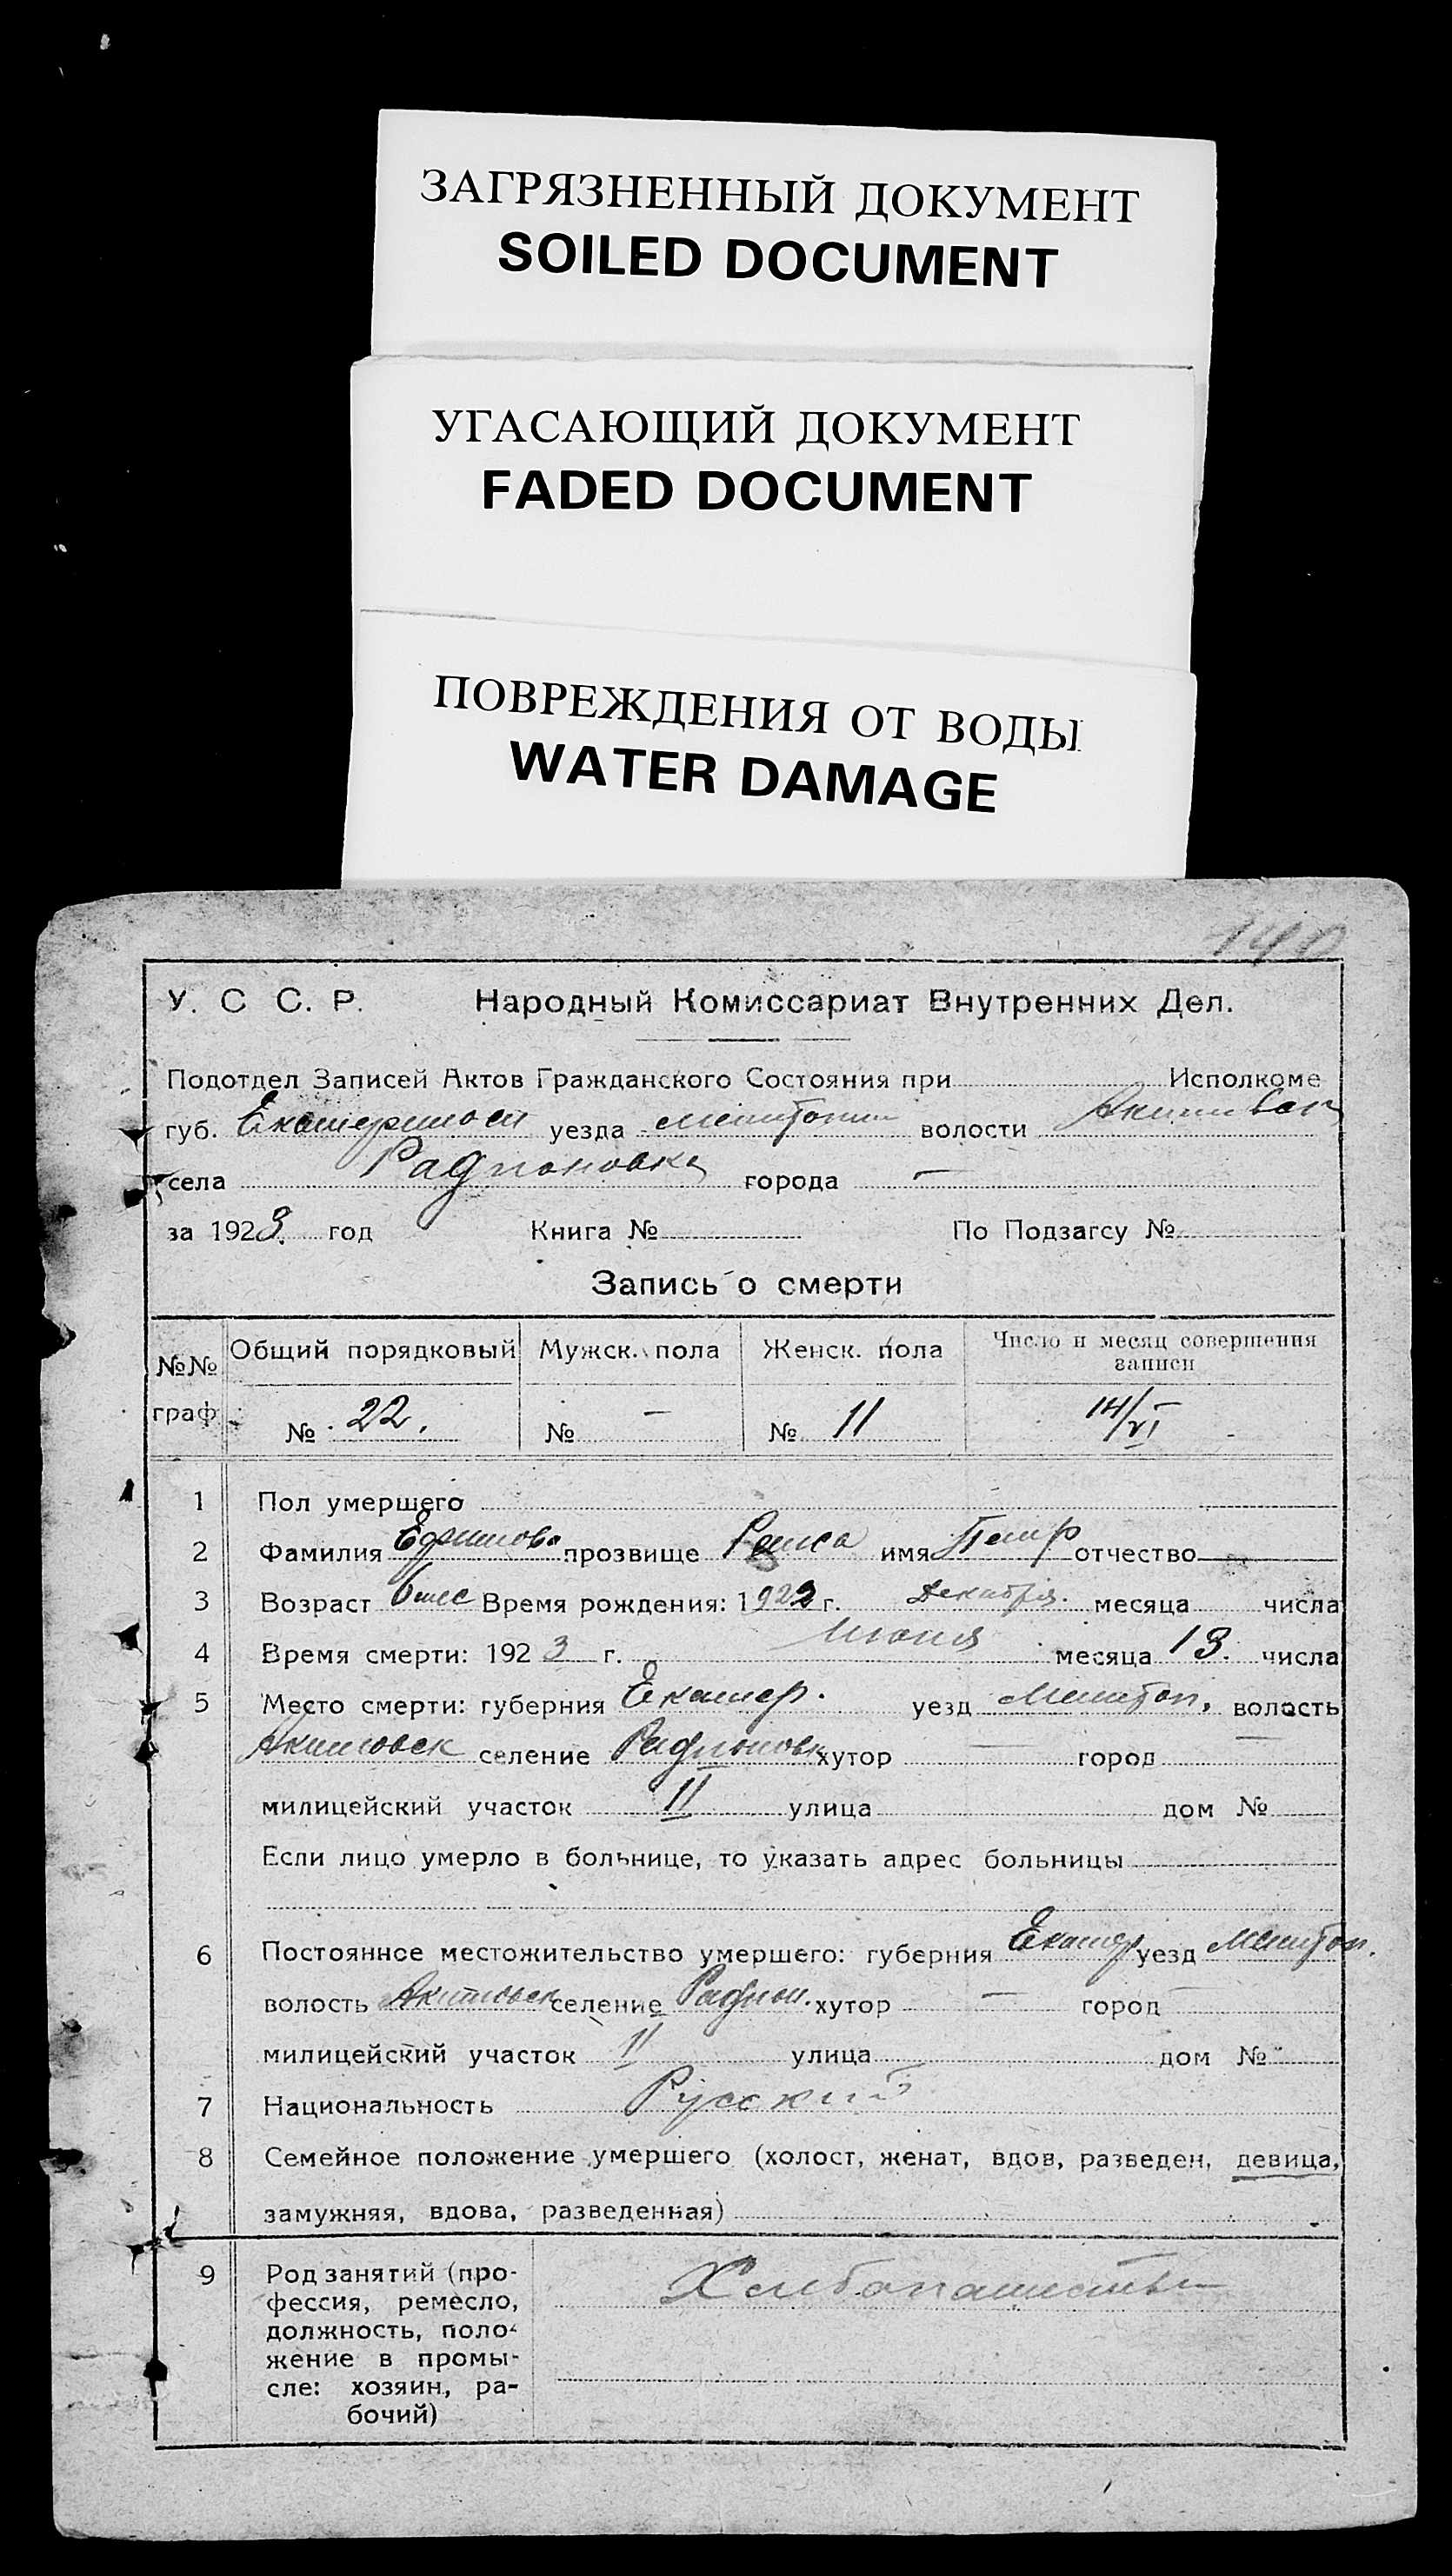 ЗАГРЯЗНЕННЫЙ ДОКУМЕНТ
SOILED DOCUMENT
УГАСАЮЩИЙ ДОКУМЕНТ
FADED DOCUMENT
ПОВРЕЖДЕНИЯ ОТ ВОДЫ
WATER DAMAGE
140
У. С С. Р. Народный Комиссариат Внутренних Дел.
Подотдел Записей Актов Гражданского Состояния при Исполкоме
губ. уезда волости
села Радионовка города —
за 1923 год Книга № По Подзагсу №
Запись о смерти
№№ Общий порядковый Мужск. пола Женск. пола Число и месяц совершения записи
граф. № 22. № — № 11 14/VI
1 Пол умершего
2 Фамилия Ефимова прозвище Раиса имя Петр отчество
3 Возраст 6 мес Время рождения: 1922 г. Декабря. месяца числа
4 Время смерти: 1923 г. Июня месяца 13. числа
5 Место смерти: губерния Екатер. уезд Мелитоп, волость
Акимовск селение хутор — город —
милицейский участок II улица дом №
Если лицо умерло в больнице, то указать адрес больницы
6 Постоянное местожительство умершего: губерния Екатер уезд Мелитоп.
волость Акимовск селение Радион. хутор — город —
милицейский участок II улица дом №
7 Национальность Русский
8 Семейное положение умершего (холост, женат, вдов, разведен, девица,
замужняя, вдова, разведенная)
9 Род занятий (про-
фессия, ремесло,
должность, поло-
жение в промы-
сле: хозяин, ра-
бочий)